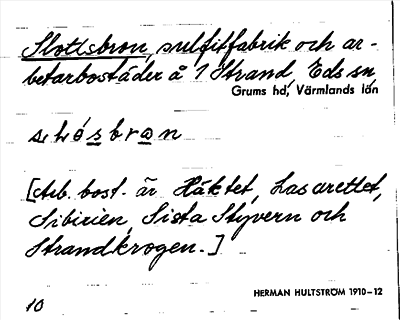 Slottsbron, sulfitfabrik och ar-
betarbostäder å 1 Strand, Eds sn,
Grums hd, Värmlands län
slósbran
[Arb. bost. är Häktet, Lasarettet,
Sibirien, Sista Styvern och
Strandkrogen.]
HERMAN HULTSTRÖM 1910-12
10